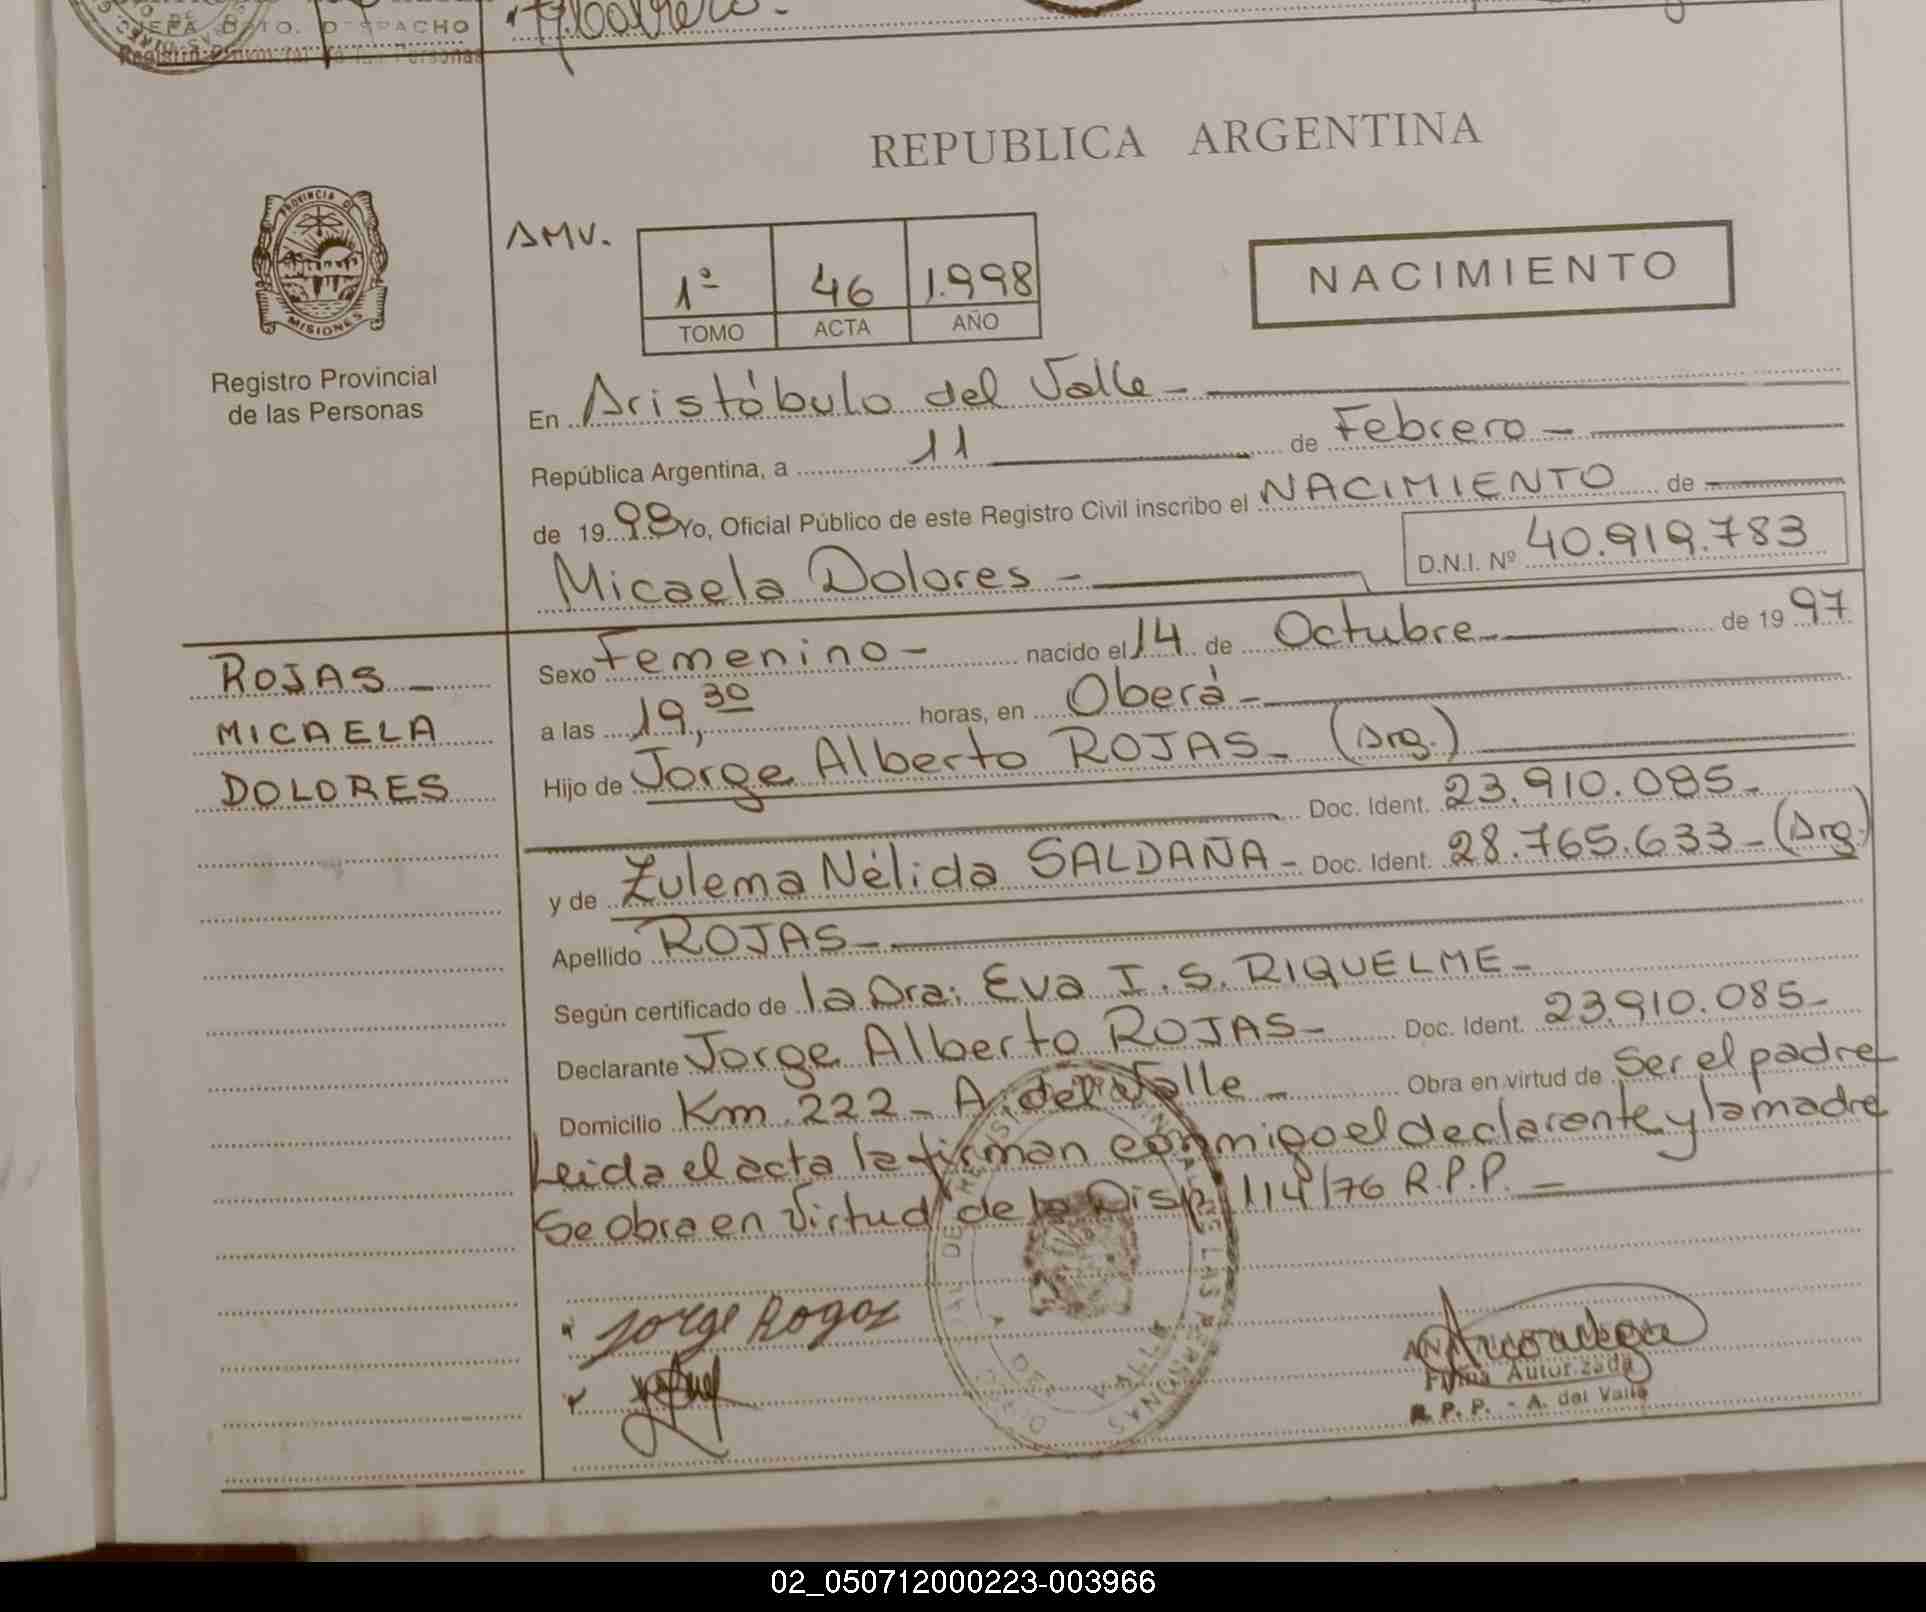 JEFA DPTO. DESPACHO
Registro Provincial de las Personas
REPUBLICA ARGENTINA
PROVINCIA DE
MISIONES
Registro Provincial
de las Personas
AMV.
1º 46 1.998
TOMO ACTA AÑO
NACIMIENTO
En Aristóbulo del Valle -
República Argentina, a 11 de Febrero -
de 1998 Yo, Oficial Público de este Registro Civil inscribo el NACIMIENTO de
Micaela Dolores - D.N.I. Nº 40.919.783
ROJAS -
MICAELA
DOLORES
Sexo Femenino - nacido el 14 de Octubre - de 1997
a las 19,30 horas, en Oberá -
Hijo de Jorge Alberto ROJAS - (Arg.)
Doc. Ident. 23.910.085 -
y de Zulema Nélida SALDAÑA - Doc. Ident. 28.765.633 - (Arg.)
Apellido ROJAS -
Según certificado de la Dra: Eva I. S. RIQUELME -
Declarante Jorge Alberto ROJAS - Doc. Ident. 23.910.085 -
Domicilio Km. 222 - A. del Valle - Obra en virtud de Ser el padre
Leida el acta la firman conmigo el declarante y la madre
Se obra en Virtud de la Disp. 114/76 R.P.P. -
Jorge Rogas
Firma Autorizada
R. P. P. - A. del Valle
02_050712000223-003966